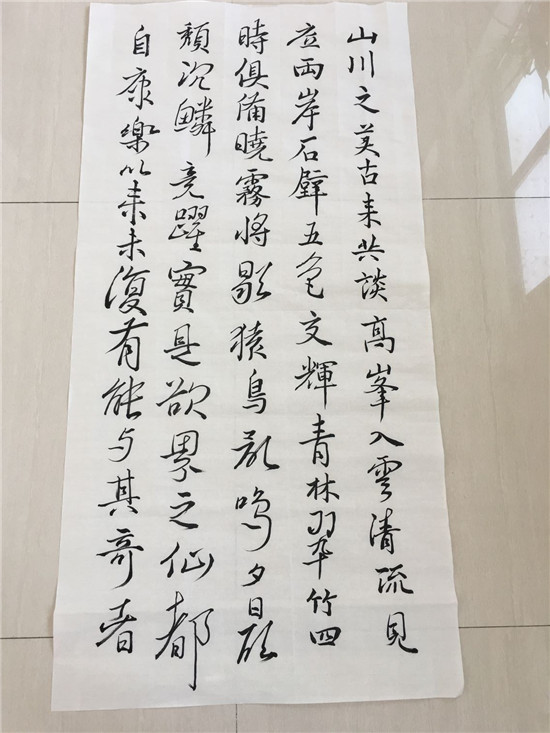 山川之美古来共談高峯入雲清流見
底兩岸石壁五色交輝青林翠竹四
時俱備曉霧將歇猿鳥亂鳴夕日欲
頹沉鱗竞躍實是欲界之仙都
自康樂以来未復有能与其奇者